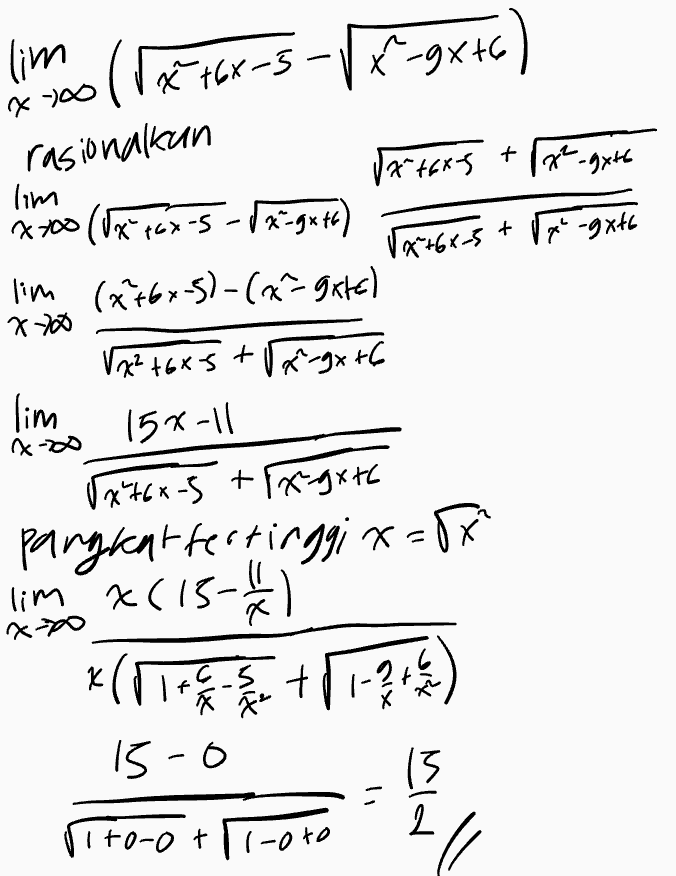 lim x→∞ (√(x²+6x-5) - √(x²-9x+6))
rasionalkan
lim x→∞ (√(x²+6x-5) - √(x²-9x+6)) (√(x²+6x-5) + √(x²-9x+6))/(√(x²+6x-5) + √(x²-9x+6))
lim x→∞ ((x²+6x-5)-(x²-9x+6))/(√(x²+6x-5) + √(x²-9x+6))
lim x→∞ (15x-11)/(√(x²+6x-5) + √(x²-9x+6))
pangkat tertinggi x = √x²
lim x→∞ x(15-11/x)/(x(√(1+6/x-5/x²) + √(1-9/x+6/x²)))
(15-0)/(√(1+0-0) + √(1-0+0)) = 15/2 //